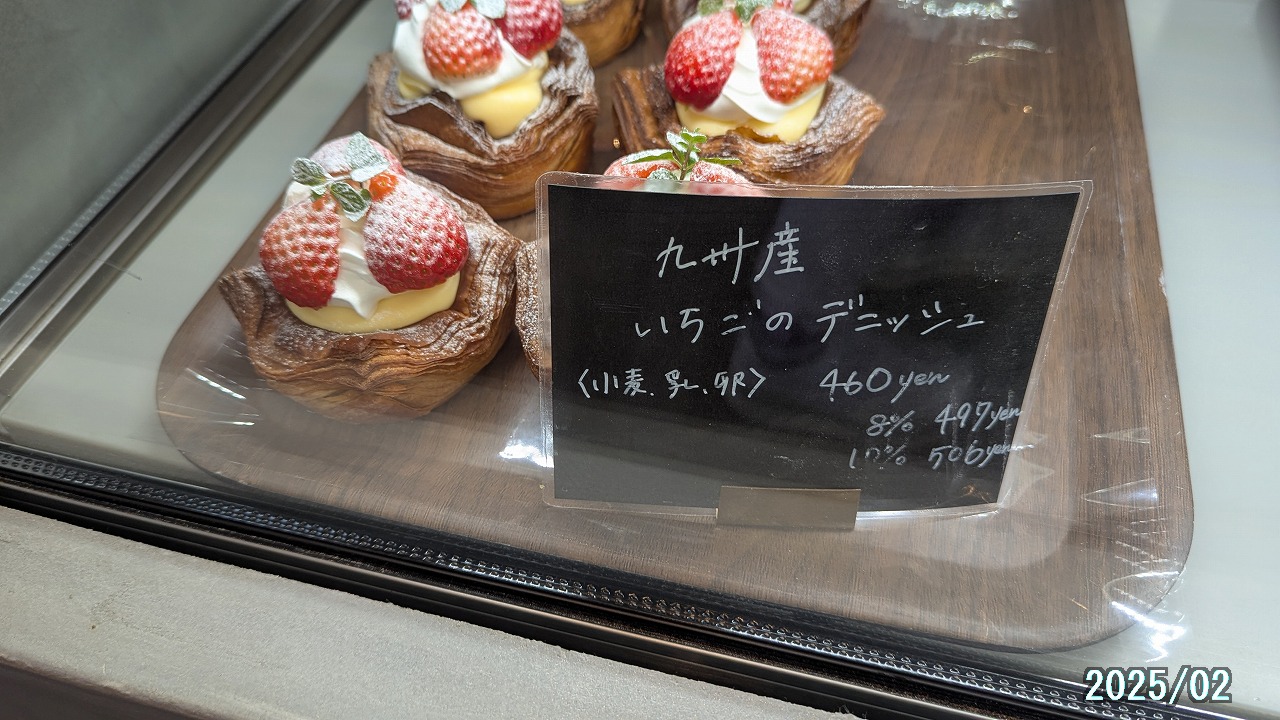 九州産
いちごのデニッシュ
〈小麦、乳、卵〉 460yen
8% 497yen
10% 506yen
2025/02